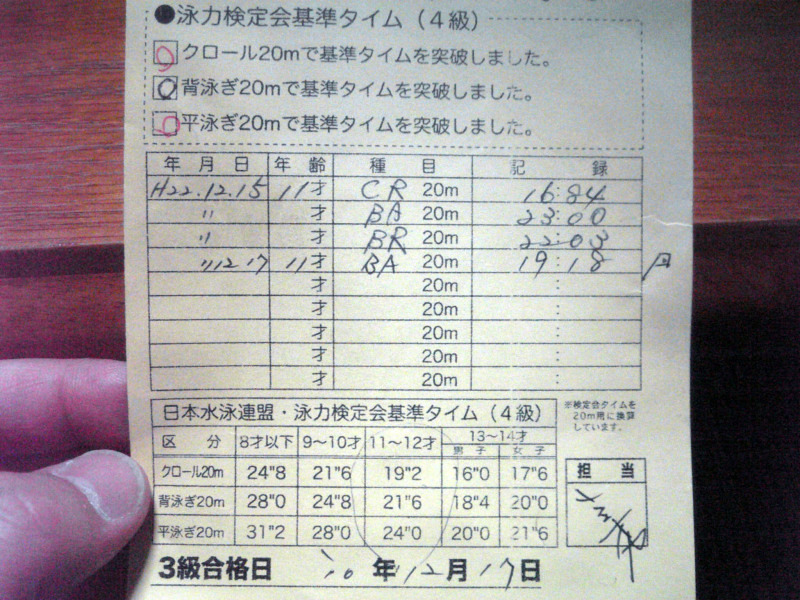 ●泳力検定会基準タイム（４級）
クロール20mで基準タイムを突破しました。
背泳ぎ20mで基準タイムを突破しました。
平泳ぎ20mで基準タイムを突破しました。
年 月 日 年 齢 種 目 記 録
H22.12.15 11才 CR 20m 16:84
〃 才 BA 20m 23:00
〃 才 BR 20m 22:03
〃12 17 11才 BA 20m 19:18
才 20m :
才 20m :
才 20m :
才 20m :
才 20m :
日本水泳連盟・泳力検定会基準タイム（４級）
※検定会タイムを
20m用に換算
しています。
区 分 8才以下 9〜10才 11〜12才 13〜14才
男 子 女 子
クロール20m 24"8 21"6 19"2 16"0 17"6
背泳ぎ20m 28"0 24"8 21"6 18"4 20"0
平泳ぎ20m 31"2 28"0 24"0 20"0 21"6
担 当
3級合格日 年 12 月 17 日